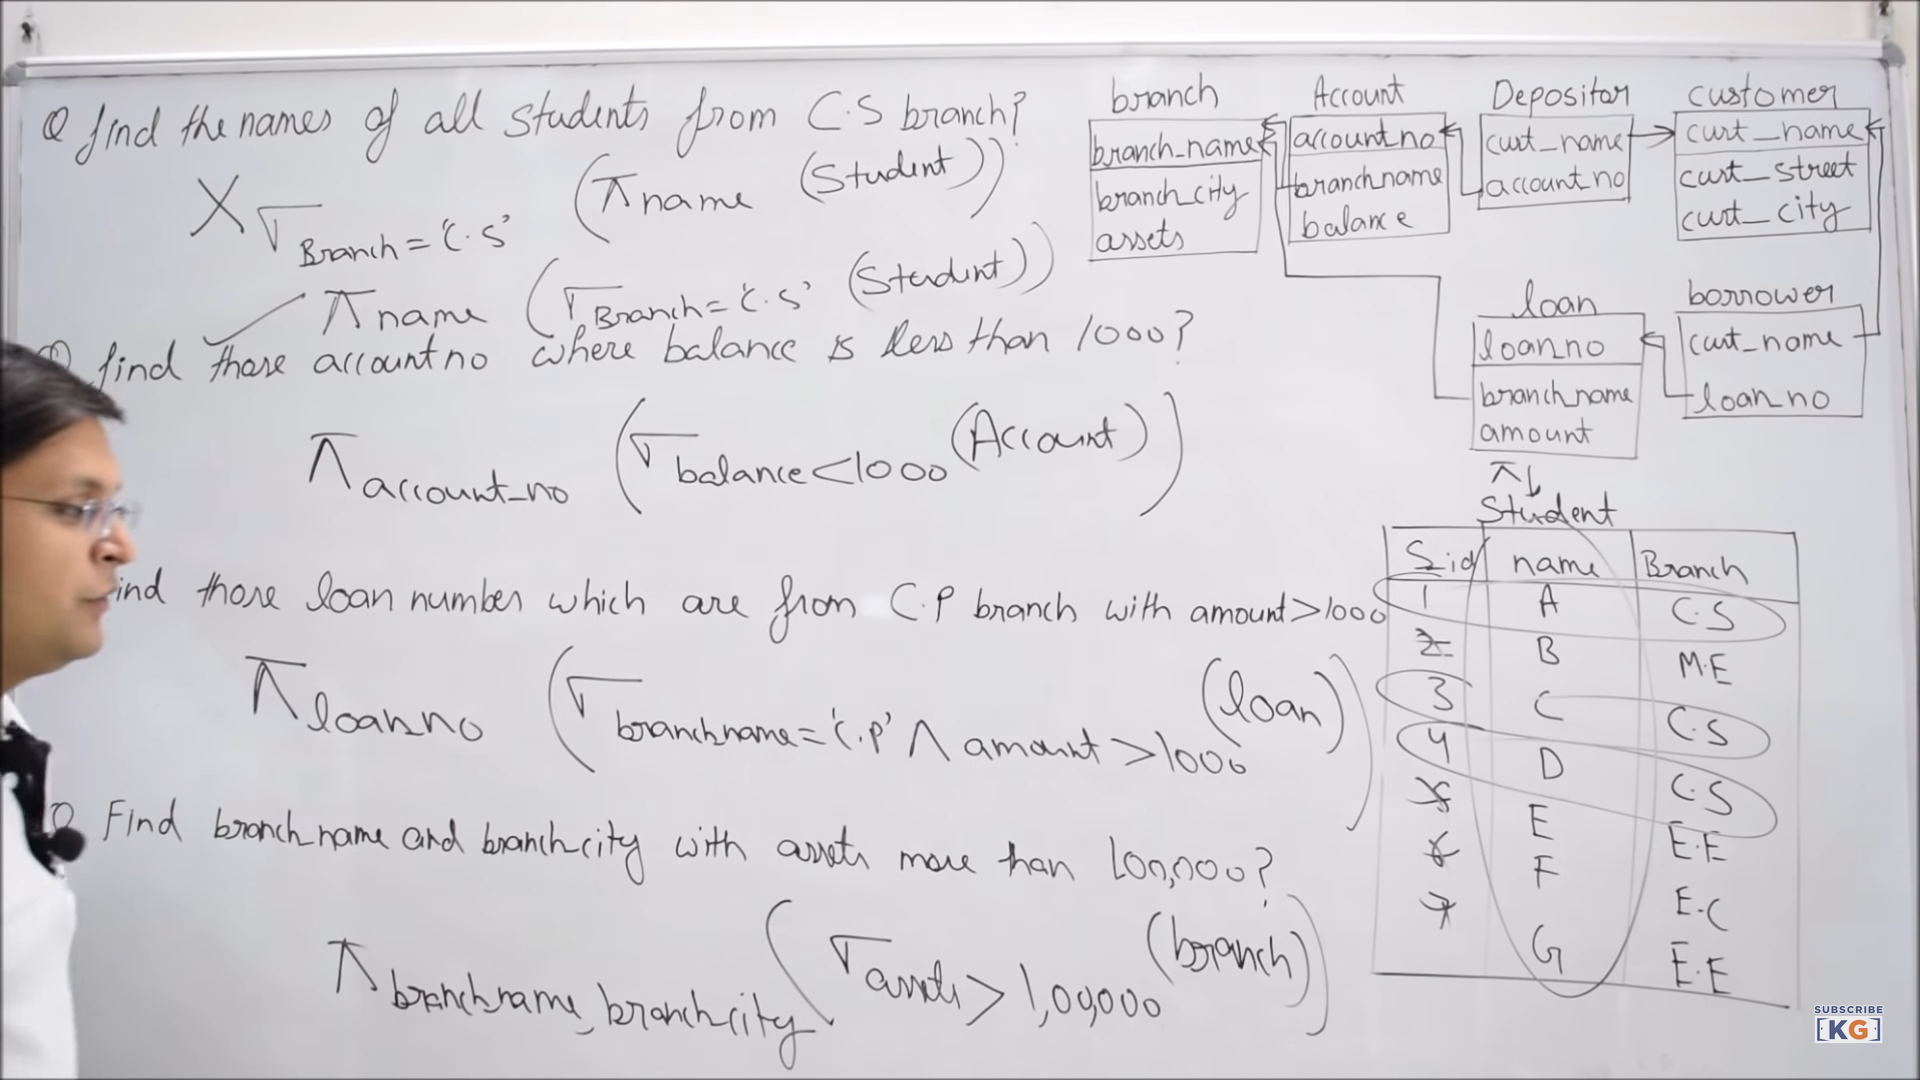 Q find the names of all students from C.S branch?
X σ Branch = 'C.S' (π name (Student))
π name (σ Branch = 'C.S' (Student))
Q find those account no where balance is less than 1000?
π account_no (σ balance < 1000 (Account))
ind those loan number which are from C.P branch with amount > 1000
π loan_no (σ branch_name = 'C.P' ∧ amount > 1000 (loan))
Q Find branch_name and branch_city with assets more than 100,000?
π branch_name, branch_city (σ assets > 1,00,000 (branch))
branch
branch_name
branch_city
assets
Account
account_no
branch_name
balance
Depositor
cust_name
account_no
customer
cust_name
cust_street
cust_city
loan
loan_no
branch_name
amount
borrower
cust_name
loan_no
π
Student
Sid name Branch
1 A C.S
2 B M.E
3 C C.S
4 D C.S
5 E E.E
6 F E.C
7 G E.E
SUBSCRIBE
[KG]